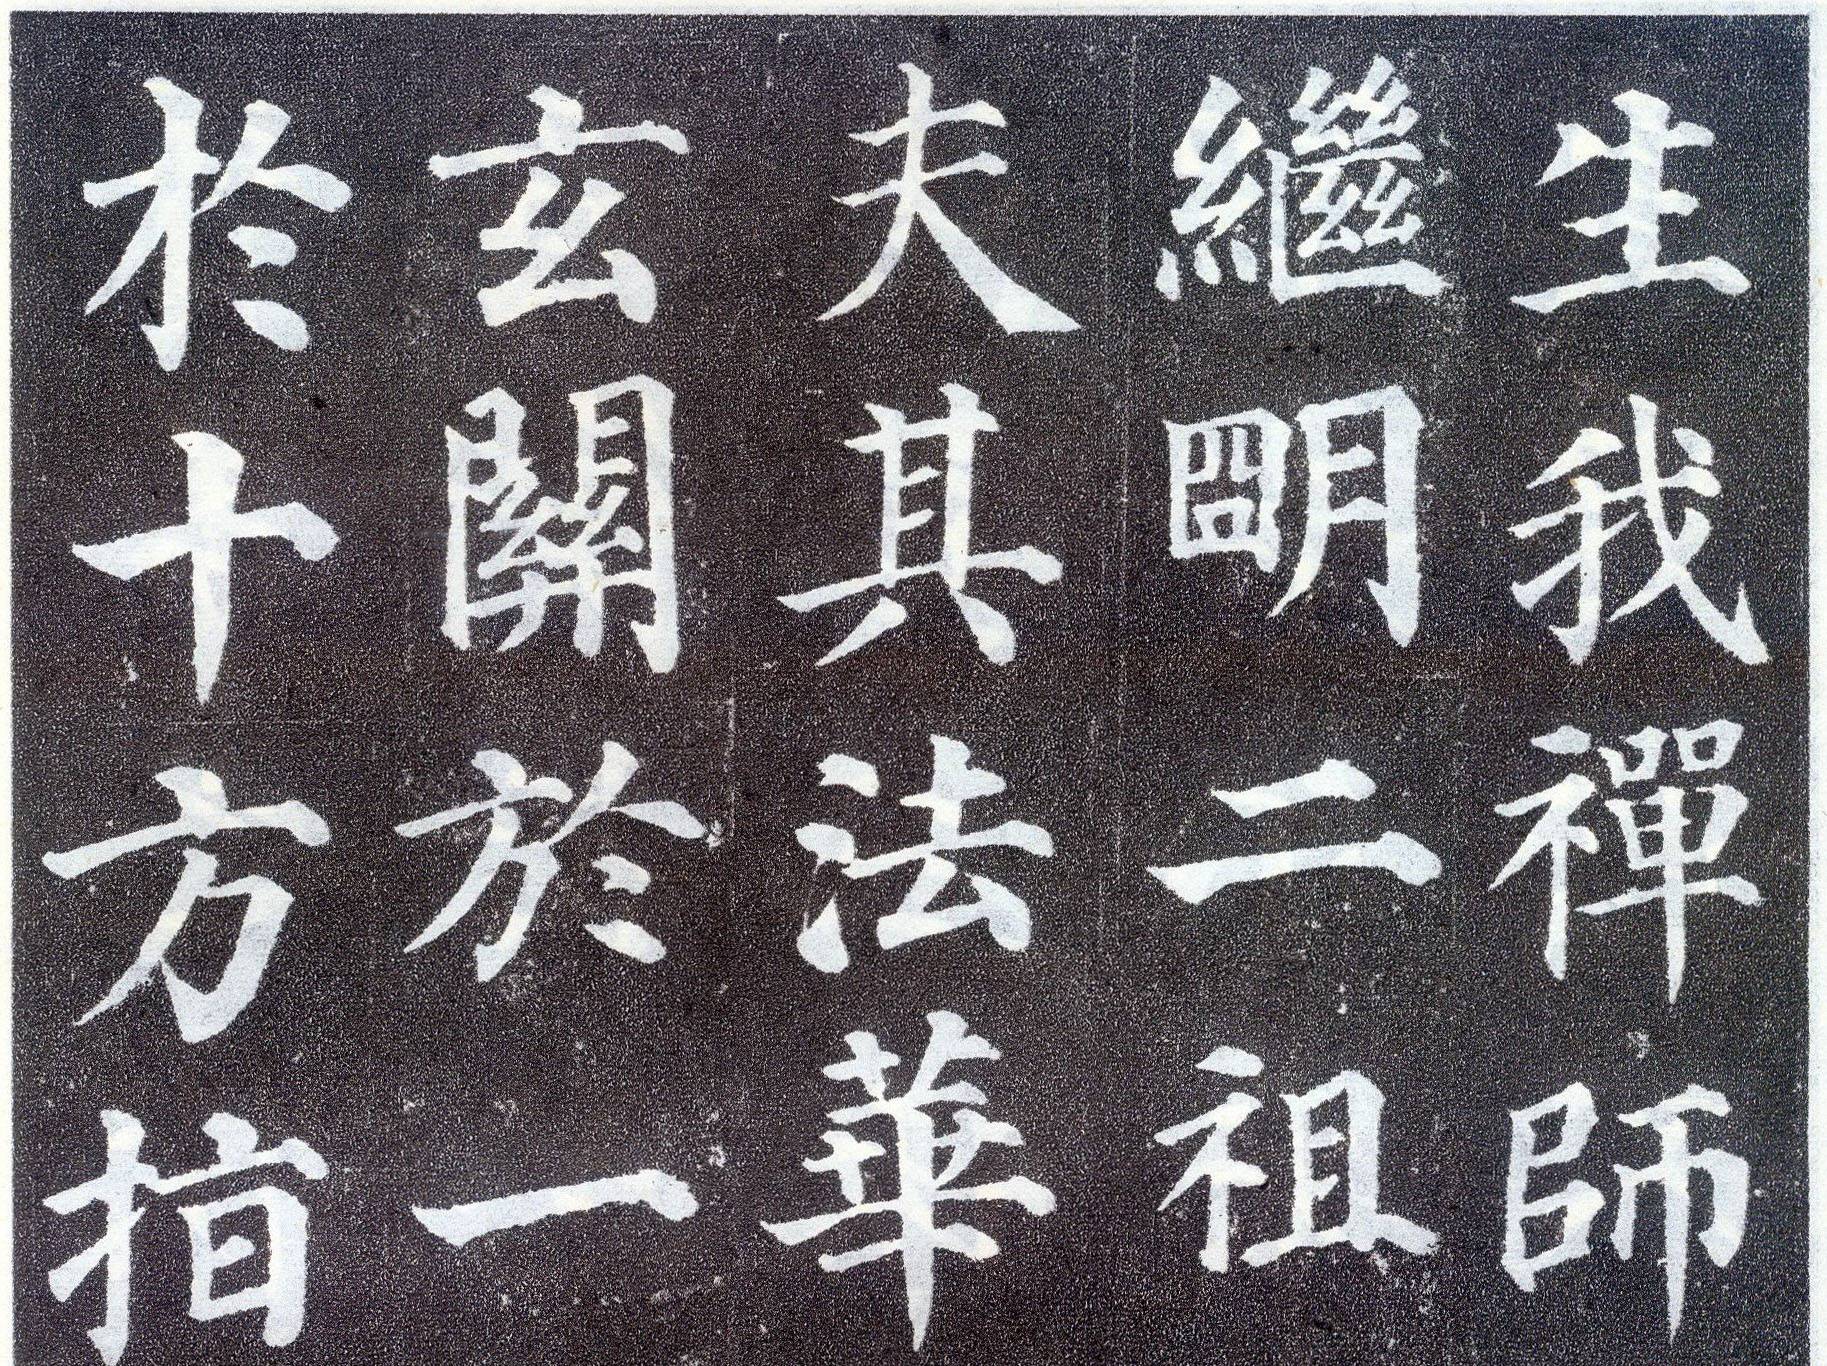 生我禪師
繼朙二祖
夫其法華
玄關於一
於十方指